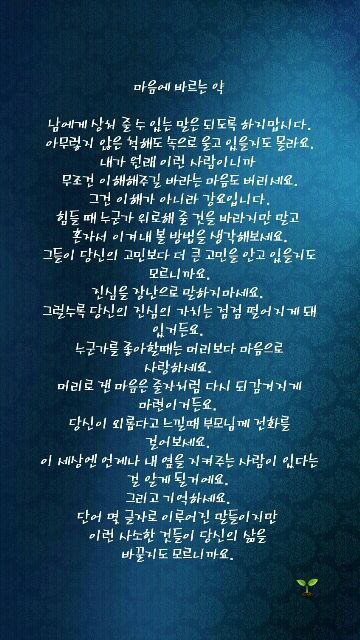 마음에 바르는 약
남에게 상처 줄 수 있는 말은 되도록 하지맙시다.
아무렇지 않은 척해도 속으로 울고 있을지도 몰라요.
내가 원래 이런 사람이니까
무조건 이해해주길 바라는 마음도 버리세요.
그건 이해가 아니라 강요입니다.
힘들 때 누군가 위로해 줄 것을 바라지만 말고
혼자서 이겨내 볼 방법을 생각해보세요.
그들이 당신의 고민보다 더 큰 고민을 안고 있을지도
모르니까요.
진심을 장난으로 말하지마세요.
그럴수록 당신의 진심의 가치는 점점 떨어지게 돼
있거든요.
누군가를 좋아할때는 머리보다 마음으로
사랑하세요.
머리로 잰 마음은 줄자처럼 다시 되감겨지게
마련이거든요.
당신이 외롭다고 느낄때 부모님께 전화를
걸어보세요.
이 세상엔 언제나 내 옆을 지켜주는 사람이 있다는
걸 알게 될거에요.
그리고 기억하세요.
단어 몇 글자로 이루어진 말들이지만
이런 사소한 것들이 당신의 삶을
바꿀지도 모르니까요.